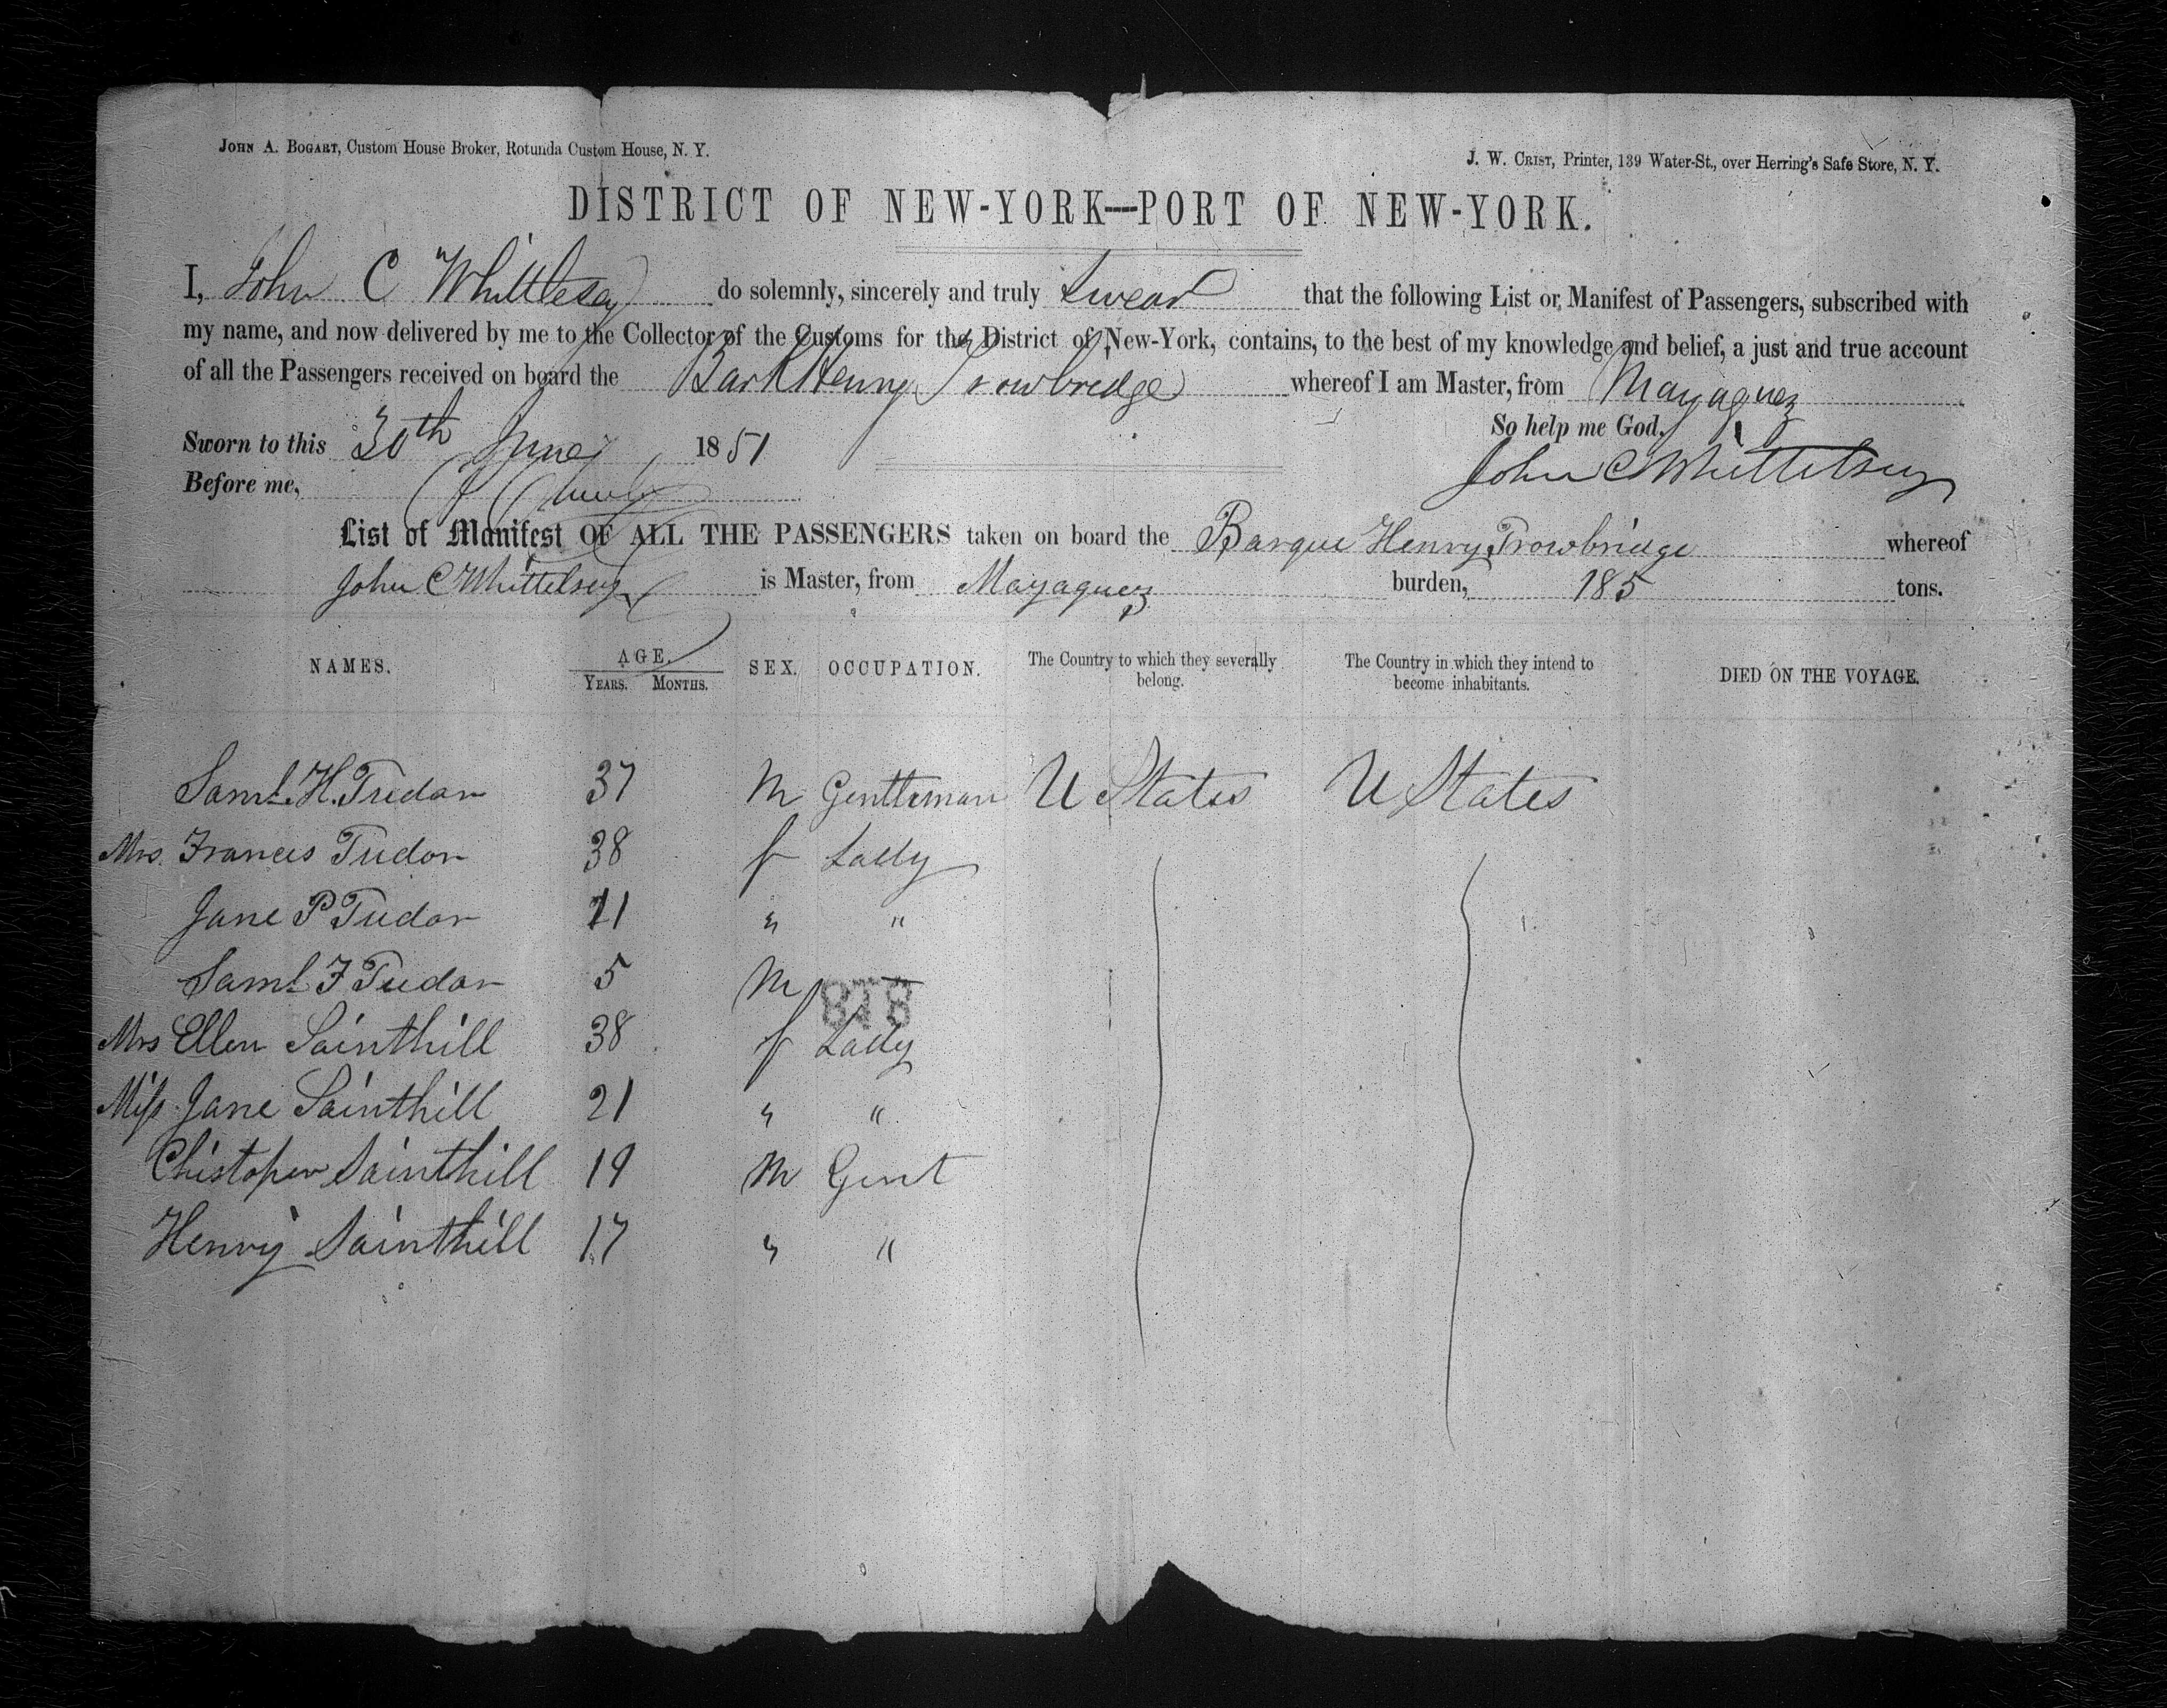 JOHN A. BOGART, Custom House Broker, Rotunda Custom House, N. Y.
J. W. CRIST, Printer, 139 Water-St., over Herring's Safe Store, N. Y.
DISTRICT OF NEW-YORK—PORT OF NEW-YORK.
I, John C Whittlesey do solemnly, sincerely and truly Swear that the following List or Manifest of Passengers, subscribed with
my name, and now delivered by me to the Collector of the Customs for the District of New-York, contains, to the best of my knowledge and belief, a just and true account
of all the Passengers received on board the Bark Henry Trowbridge whereof I am Master, from Mayaguez
So help me God.
Sworn to this 30th June 1851
John C Whittelsey
Before me,
List of Manifest OF ALL THE PASSENGERS taken on board the Barque Henry Trowbridge whereof
John C Whittelsey is Master, from Mayaguez burden, 185 tons.
NAMES. AGE. YEARS. MONTHS. SEX. OCCUPATION. The Country to which they severally belong. The Country in which they intend to become inhabitants. DIED ON THE VOYAGE.
Saml. H. Tudor 37 M Gentleman U States U States
Mrs. Frances Tudor 38 f Lady
Jane P Tudor 11 " "
Saml F Tudor 5 M —
818
Mrs Ellen Sainthill 38 f Lady
Miss Jane Sainthill 21 " "
Chistoper Sainthill 19 M Gent
Henry Sainthill 17 " "